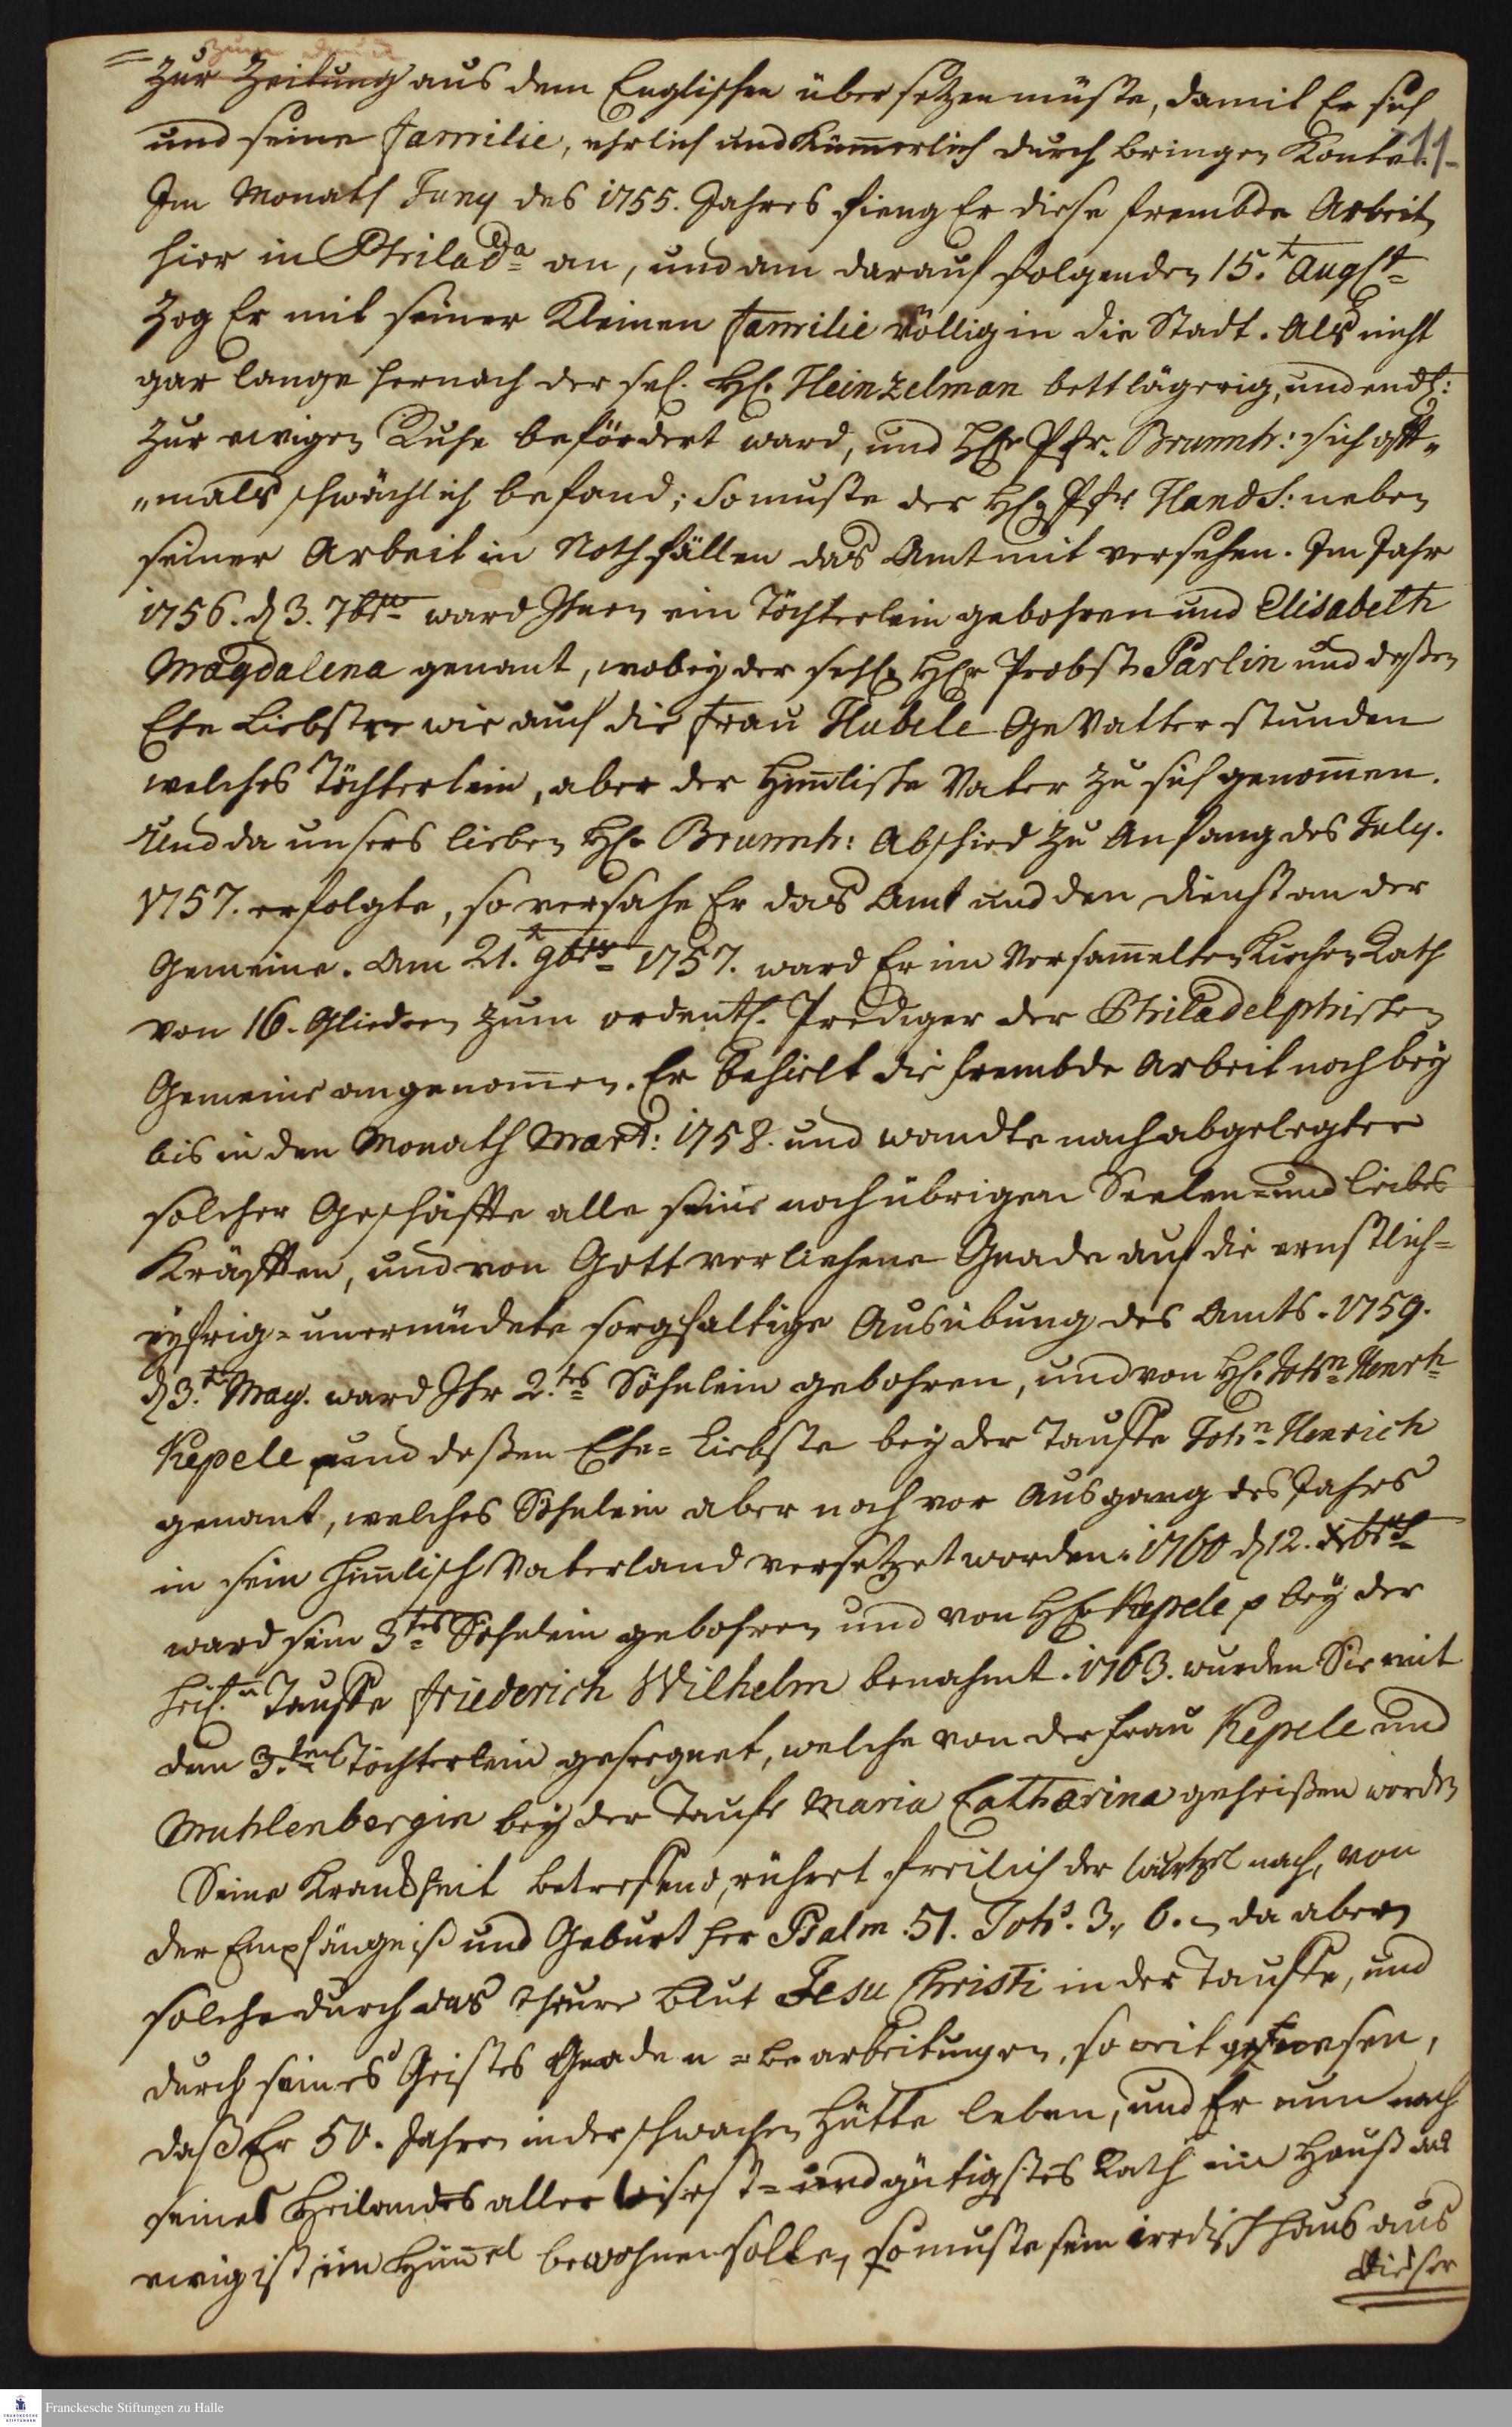 zum druck
= Zur Zeitung aus dem Englischen übersetzen müste, damit Er sich
und seine Familie, ehrlich und Kümerlich durch bringen Konte.
11
Im Monath Juny des 1755. Jahres fieng Er diese frembde Arbeit
hier in Philada an, und am darauf folgenden 15.t Augst
Zog Er mit seiner Kleinen Familie völlig in die Stadt. Als nicht
gar lange hernach der sel. H. Heinzelman bettlägerig, und endl:
zur ewigen Ruhe befördert ward, und HE Pfr. Brunnh: sich offt„
„mals schwächlich befand; So muste der HE Pfr Hands: neben
seiner Arbeit in Nothfällen das Amt mit versehen. Im Jahr
1756. d 3. 7br ward Ihnen ein Töchterlein gebohren und Elisabeth
Magdalena genant, wobey der sehl HEr Probst Parlin und deßen
Ehe Liebste wie auch die Frau Hubele GeVatter stunden
welches Töchterlein, aber der Himlische Vater zu sich genomen.
Und da unsers lieben HE Brunnh: Abschied zu Anfang des July.
1757. erfolgte, so versahe Er das Amt und den Dienst an der
Gemeine. Am 21.t 9br 1757. ward Er im Versamelten Kirchen Rath
von 16. Gliedern zum ordentl. Prediger der Philadelphischen
Gemeine angenomen. Er behielt die frembde Arbeit noch bey
bis in den Monath Mart: 1758. und wandte nach abgelegter
solcher Geschäffte alle seine noch übrigen Seelen= und Leibes
Kräfften, und von Gott verliehene Gnade auf die ernstlich=
eyfrig= unermüdete sorgfältige Ausübung des Amts. 1759.
d 3.t May. ward Ihr 2.tes Söhnlein gebohren, und von H. John Henrh
Kepele und deßen Ehe= Liebste bey der Tauffe John Henrich
genant, welches Söhnlein aber noch vor Ausgang des Jahrs
in sein himlisch Vaterland versetzet worden. 1760 d 12. Xbr
ward sein 3tes Söhnlein gebohren und von HE Kepele p bey der
heil.n Tauffe Friederich Wilhelm benahmt. 1763. wurden Sie mit
dem 3.ten Töchterlein gesegnet, welche von der Frau Kepele und
Muhlenbergin bey der Taufe Maria Catharina geheißen worden
Seine Krankheit betreffend, rühret freilich der Wurtzel nach, von
der Empfängniß und Geburt her Psalm. 51. Johs. 3, 6. da aber
solche durch das theure Blut Jesu Christi in der Tauffe, und
durch seines Geistes Gnaden=bearbeitungen, so weit gewesen,
daß Er 50. Jahre in der schwachen Hütte leben, und Er nun nach
seines Heilandes aller weisest= und gütigstes Rath ein Hauß das
ewig ist, im Himel bewohnen solte, so muste sein irrdisch Haus aus
dieser
Franckesche Stiftungen zu Halle